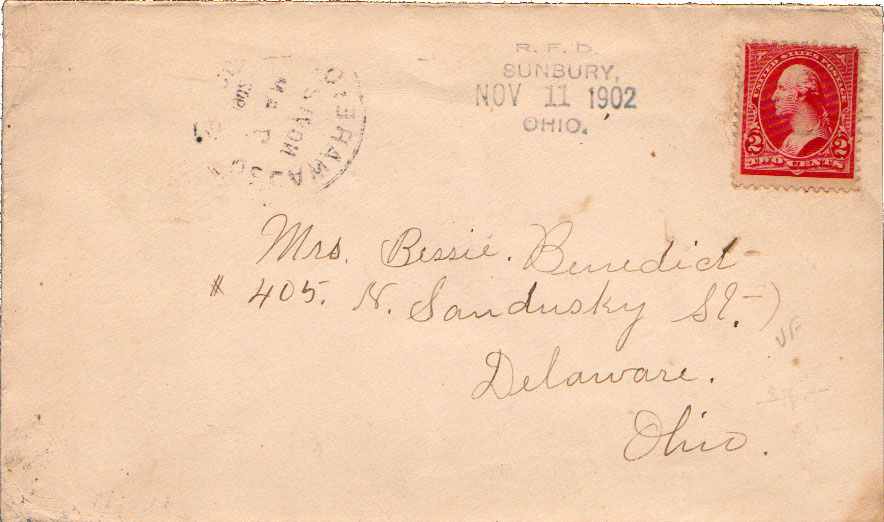 R. F. D.
SUNBURY,
NOV 11 1902
OHIO.
UNITED STATES POSTAGE
2 2
TWO CENTS
Mrs. Bessie. Benedict
# 405. N. Sandusky St.
Delaware.
Ohio.
VF